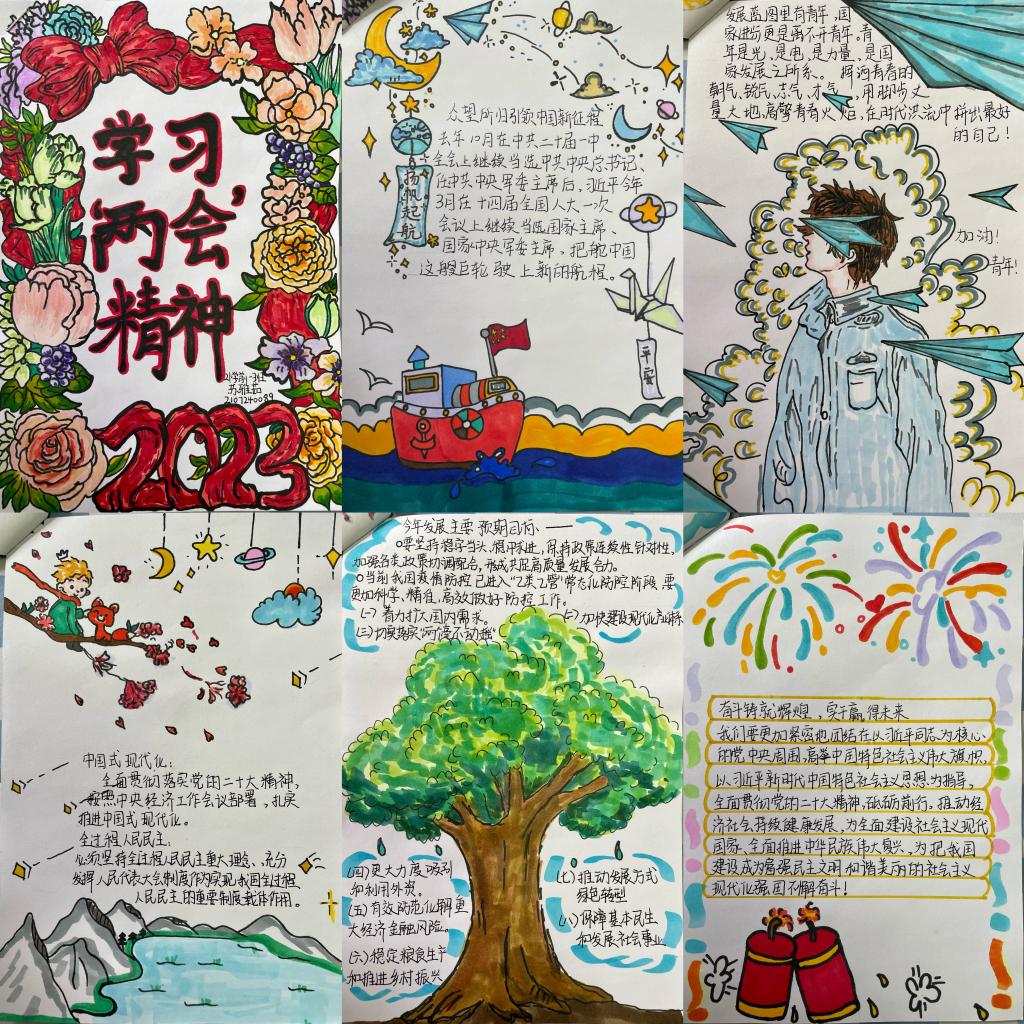 学习
‘两会’
精神
小学前一班
苏雅茹
2107240089
2023
众望所归引领中国新征程
去年10月在中共二十届一中
全会上继续当选中共中央总书记、
任中共中央军委主席后,习近平今年
3月在十四届全国人大一次
会议上继续当选国家主席、
国家中央军委主席,把舵中国
这艘巨轮驶上新的航程。
扬帆起航
平安
发展蓝图里有青年,国
家进步更是离不开青年,青
年是光,是电,是力量,是国
家发展之所系。
朝气、锐气、志气、才气,用脚步丈
量大地,高擎青春火炬,在时代洪流中拼出最好
的自己!
加油!
青年!
中国式现代化:
全面贯彻落实党的二十大精神,
按照中央经济工作会议部署,扎实
推进中国式现代化。
全过程人民民主:
必须坚持全过程人民民主重大理念、充分
发挥人民代表大会制度作为实现我国全过程
人民民主的重要制度载体作用。
今年发展主要预期目标:——
○要坚持稳字当头、稳中求进,保持政策连续性针对性,
加强各类政策协调配合,形成共促高质量发展合力。
○当前我国疫情防控已进入“乙类乙管”常态化防控阶段,要
更加科学、精准、高效做好防控工作。
(一)着力扩大国内需求。
(二)加快建设现代化产业体系
(三)切实落实“两个毫不动摇”
(四)更大力度吸引
和利用外资。
(五)有效防范化解重
大经济金融风险。
(六)稳定粮食生产
和推进乡村振兴
(七)推动发展方式
绿色转型
(八)保障基本民生
和发展社会事业
奋斗铸就辉煌,实干赢得未来
我们要更加紧密地团结在以习近平同志为核心
的党中央周围,高举中国特色社会主义伟大旗帜,
以习近平新时代中国特色社会主义思想为指导,
全面贯彻党的二十大精神,砥砺前行,推动经
济社会持续健康发展,为全面建设社会主义现代
国家、全面推进中华民族伟大复兴,为把我国
建设成为富强民主文明和谐美丽的社会主义
现代化强国不懈奋斗!